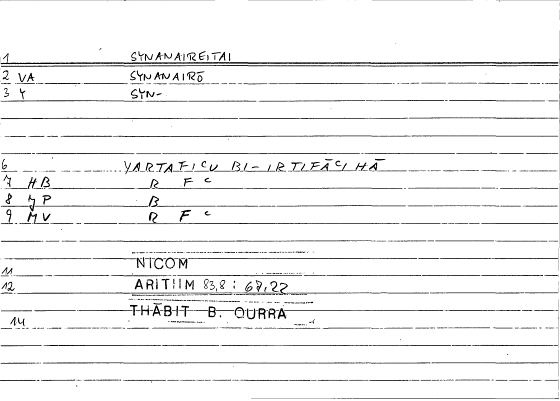 1 SYNANAIREITAI
2 VA SYNANAIRŌ
3 Y SYN-
6 YARTAFICU BI-IRTIFĀCI HĀ
7 HB R F C
8 YP B
9 MV R F C
NICOM
11
12 ARITIIM 83,8 : 67,22
THĀBIT B. QURRA
14